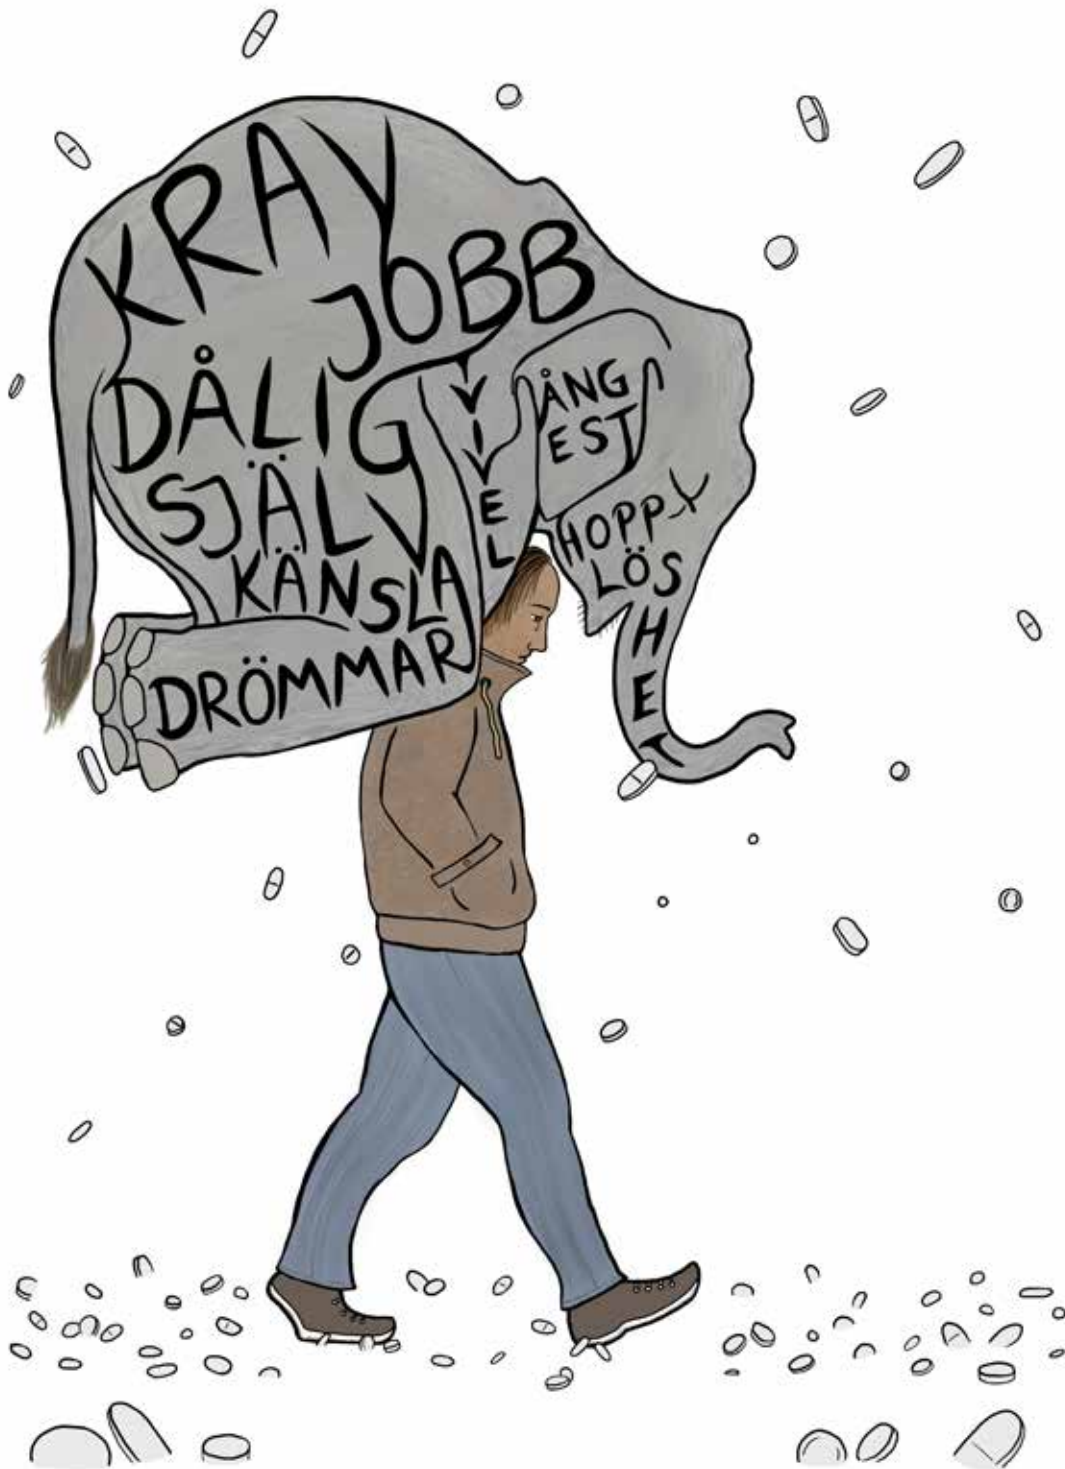 KRAV
JOBB
DÅLIG
SJÄLV
KÄNSLA
DRÖMMAR
TVIVEL
ÅNG
EST
HOPP
LÖS
HET